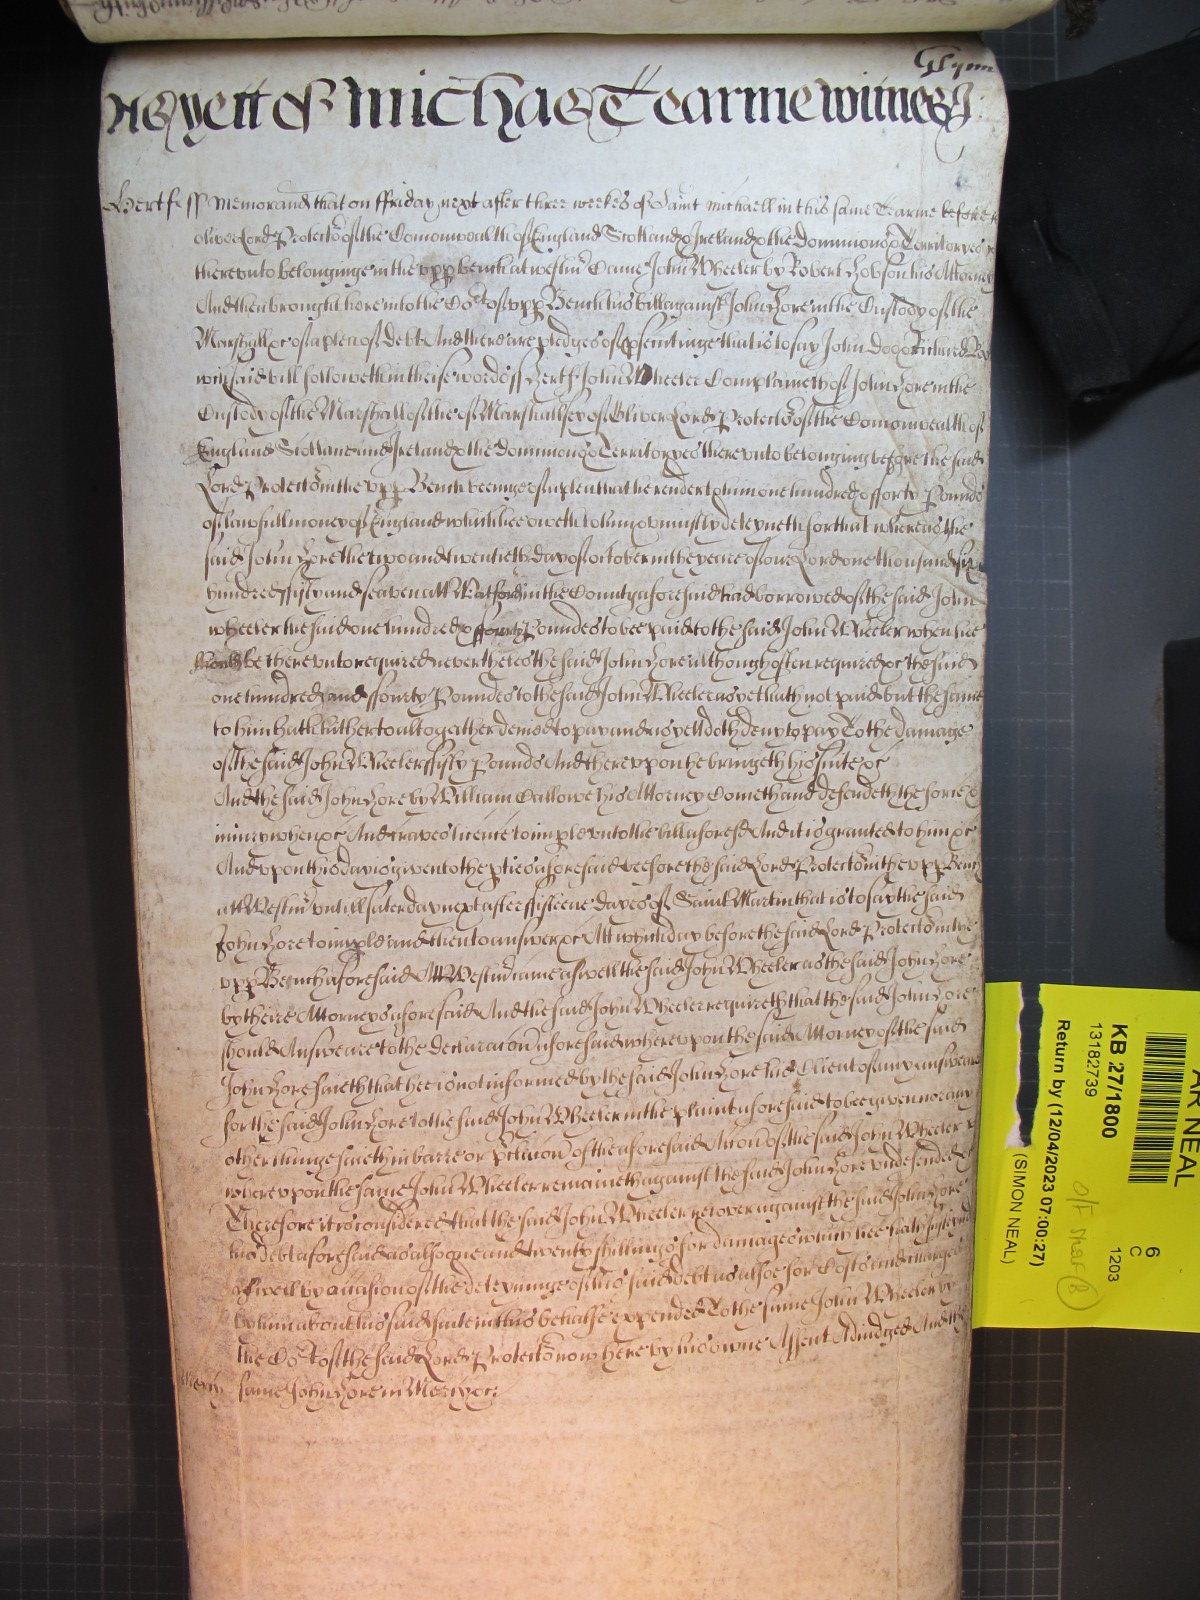 Glynn
As yett of Michās Tearme witnes J:
Hertf ss Memorand that on ffriday next after three weekes of Saint Michaell in this same Tearme before
Oliver Lord Protector of the Comonwealth of England Scotland & Ireland & the Dominions & Territoryes
therevnto belonginge in the vpp bench at Westm̄ Came John Wheeler by Robert Hobson his Attorney
And then brought here into the Cort of vpp Bench his bill against John Lore in the Custody of the
Marshall &c of a plea of debt And there are pledges of psecutinge that is to say John Doe & Richard Roe
wch said bill followeth in theise words ss Hertf John Wheeler Complaineth of John Lore in the
Custody of the Marshall of the of Marshallsey of Oliver Lord Protector of the Comonwealth of
England Scotland and Ireland & the Dominions & Territoryes therevnto belonging before the said
Lord Protector in the vpp Bench beeinge of a plea that he render to him one hundred & fforty Pounds
of lawfull money of England which hee oweth to him & vniustly deteyneth for that whereas the
said John Lore the two and twentieth day of October in the yeare of our Lord one thousand six
hundred ffifty and seaven att Watford in the County aforesaid had borrowed of the said John
Wheeler the said one hundred & fforty Poundes to bee paid to the said John Wheeler when hee
should be therevnto required neverthelesse the said John Lore although often required &c the said
one hundred and fforty Poundes to the said John Wheeler as yet hath not paid but the same
to him hath hitherto altogether denied to pay and as yett doth deny to pay To the damage
of the said John Wheeler ffifty Pounds And therevpon he bringeth his suite &c
And the said John Lore by William Callowe his Attorney Cometh and defendeth the force &
iniury when &c And craves licence to imple vnto the bill aforesd And it is granted to him &c
And vpon this day is given to the pties aforesaid before the said Lord Protector in the vpp Bench
att Westm̄ vntill Saterday next after ffifteene dayes of Saint Martin that is to say the said
John Lore to impld and then to answer &c Att which day before the said Lord Protector in the
vpp Bench aforesaid Att Westm̄ came aswell the said John Wheeler as the said John Lore
by theire Attorneys aforesaid And the said John Wheeler requireth that the said John Lore
should Answeare to the declaracōn aforesaid wherevpon the said Attorney of the said
John Lore saieth that hee is not informed by the said John Lore his Client of any answeare
for the said John Lore to the said John Wheeler in the plaint aforesaid to bee given nor any
other thinge saieth in barre or of the aforesaid Accōn of the said John Wheeler
wherevpon the same John Wheeler remaineth against the said John Lore vndefended
Therefore it is considered that the said John Wheeler recover against the said John Lore
his debt aforesaid as allso one and twenty shillings for damages which hee hath susteyned
aswell by occasion of the deteyninge of his said debt as allsoe for Costs and charges
by him about his said suite in this behalfe expended To the same John Wheeler by
the Cort of the said Lord Protector now here by his owne Assent Adiudged And the
Mercy same John Lore in Mercy &c:
AR NEAL
KB 27/1800
13182739
Return by (12/04/2023 07:00:27)
(SIMON NEAL)
6
C
1203